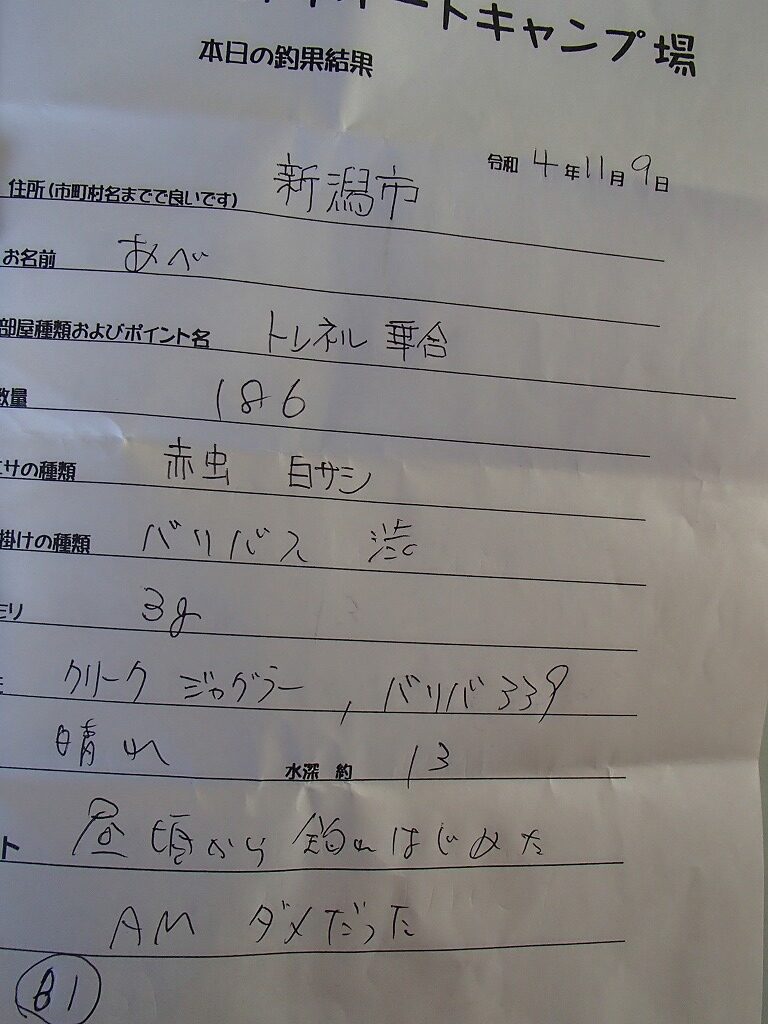 ートキャンプ場
本日の釣果結果
令和 4年11月9日
住所(市町村名までで良いです) 新潟市
お名前 あべ
部屋種類およびポイント名 トンネル
数量 186
エサの種類 赤虫 白サシ
掛けの種類 バリバス 渋
モリ 3g
クリーク ジャグラー, バリバ339
晴れ 水深 約 13
ト 昼頃から釣れはじめた
AM ダメだった
B1